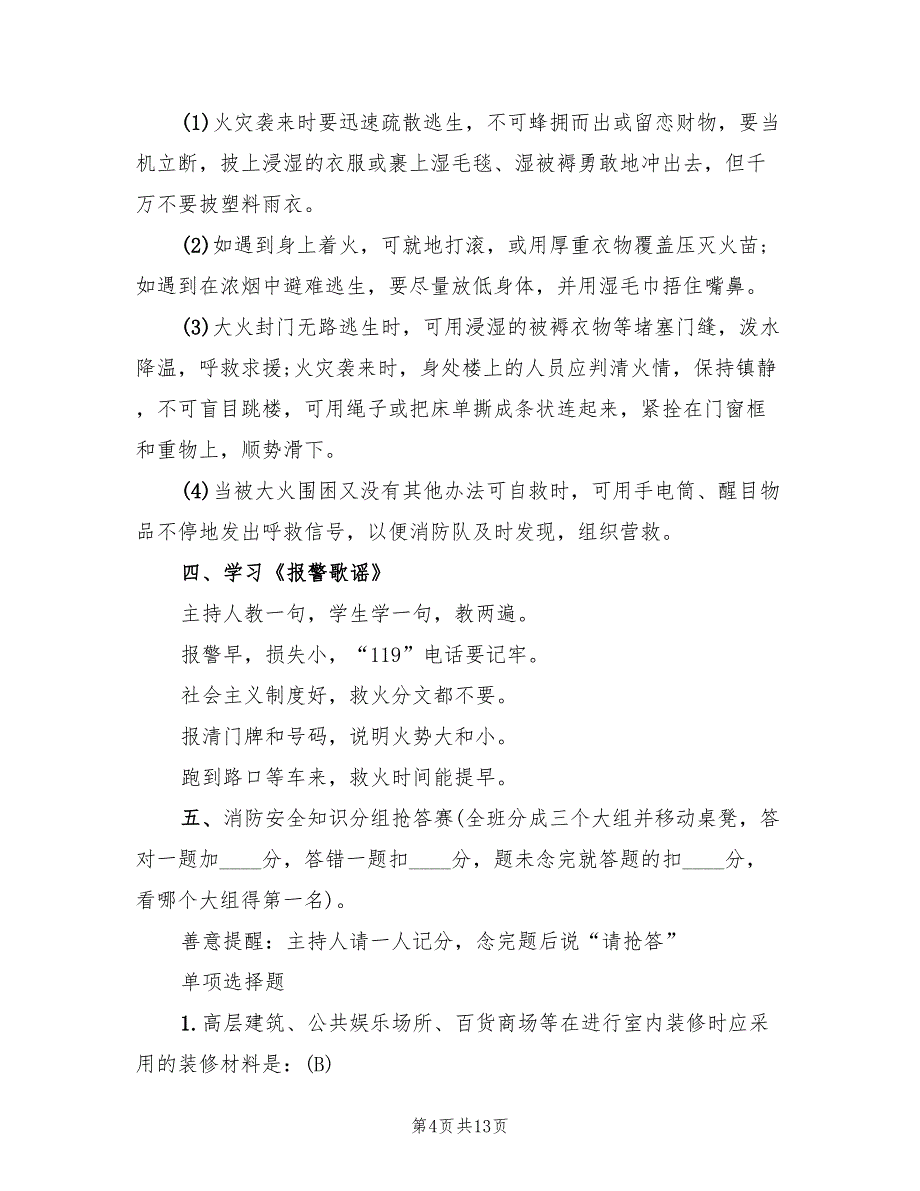 (1)火灾袭来时要迅速疏散逃生，不可蜂拥而出或留恋财物，要当
机立断，披上浸湿的衣服或裹上湿毛毯、湿被褥勇敢地冲出去，但千
万不要披塑料雨衣。
(2)如遇到身上着火，可就地打滚，或用厚重衣物覆盖压灭火苗;
如遇到在浓烟中避难逃生，要尽量放低身体，并用湿毛巾捂住嘴鼻。
(3)大火封门无路逃生时，可用浸湿的被褥衣物等堵塞门缝，泼水
降温，呼救求援;火灾袭来时，身处楼上的人员应判清火情，保持镇静
，不可盲目跳楼，可用绳子或把床单撕成条状连起来，紧拴在门窗框
和重物上，顺势滑下。
(4)当被大火围困又没有其他办法可自救时，可用手电筒、醒目物
品不停地发出呼救信号，以便消防队及时发现，组织营救。
四、学习《报警歌谣》
主持人教一句，学生学一句，教两遍。
报警早，损失小，“119”电话要记牢。
社会主义制度好，救火分文都不要。
报清门牌和号码，说明火势大和小。
跑到路口等车来，救火时间能提早。
五、消防安全知识分组抢答赛(全班分成三个大组并移动桌凳，答
对一题加____分，答错一题扣____分，题未念完就答题的扣____分，
看哪个大组得第一名)。
善意提醒：主持人请一人记分，念完题后说“请抢答”
单项选择题
1.高层建筑、公共娱乐场所、百货商场等在进行室内装修时应采
用的装修材料是：(B)
第4页共13页